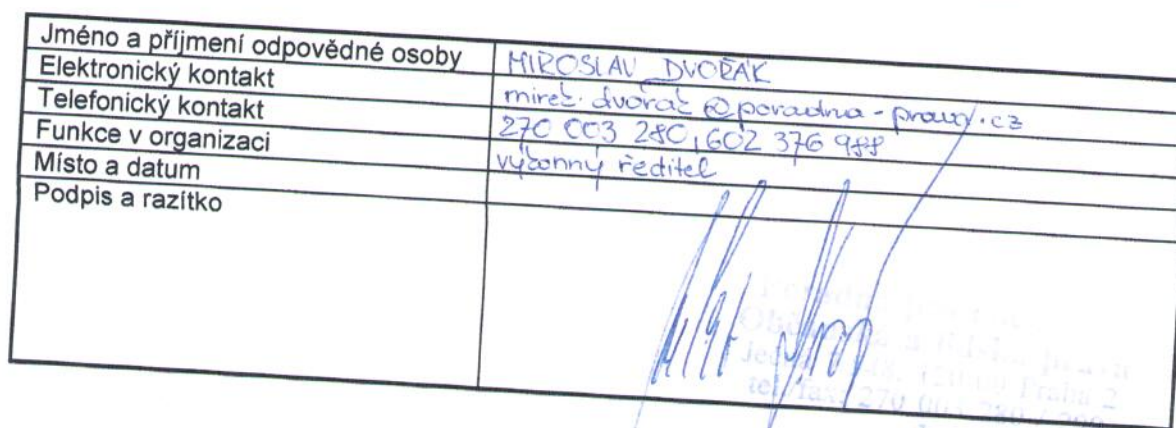 Jméno a příjmení odpovědné osoby MIROSLAV DVOŘÁK
Elektronický kontakt mirek.dvorak@poradna-prava.cz
Telefonický kontakt 270 003 280, 602 376 988
Funkce v organizaci výkonný ředitel
Místo a datum
Podpis a razítko
Občanská a lidská práva
Praha 2
tel/fax: 270 003 280